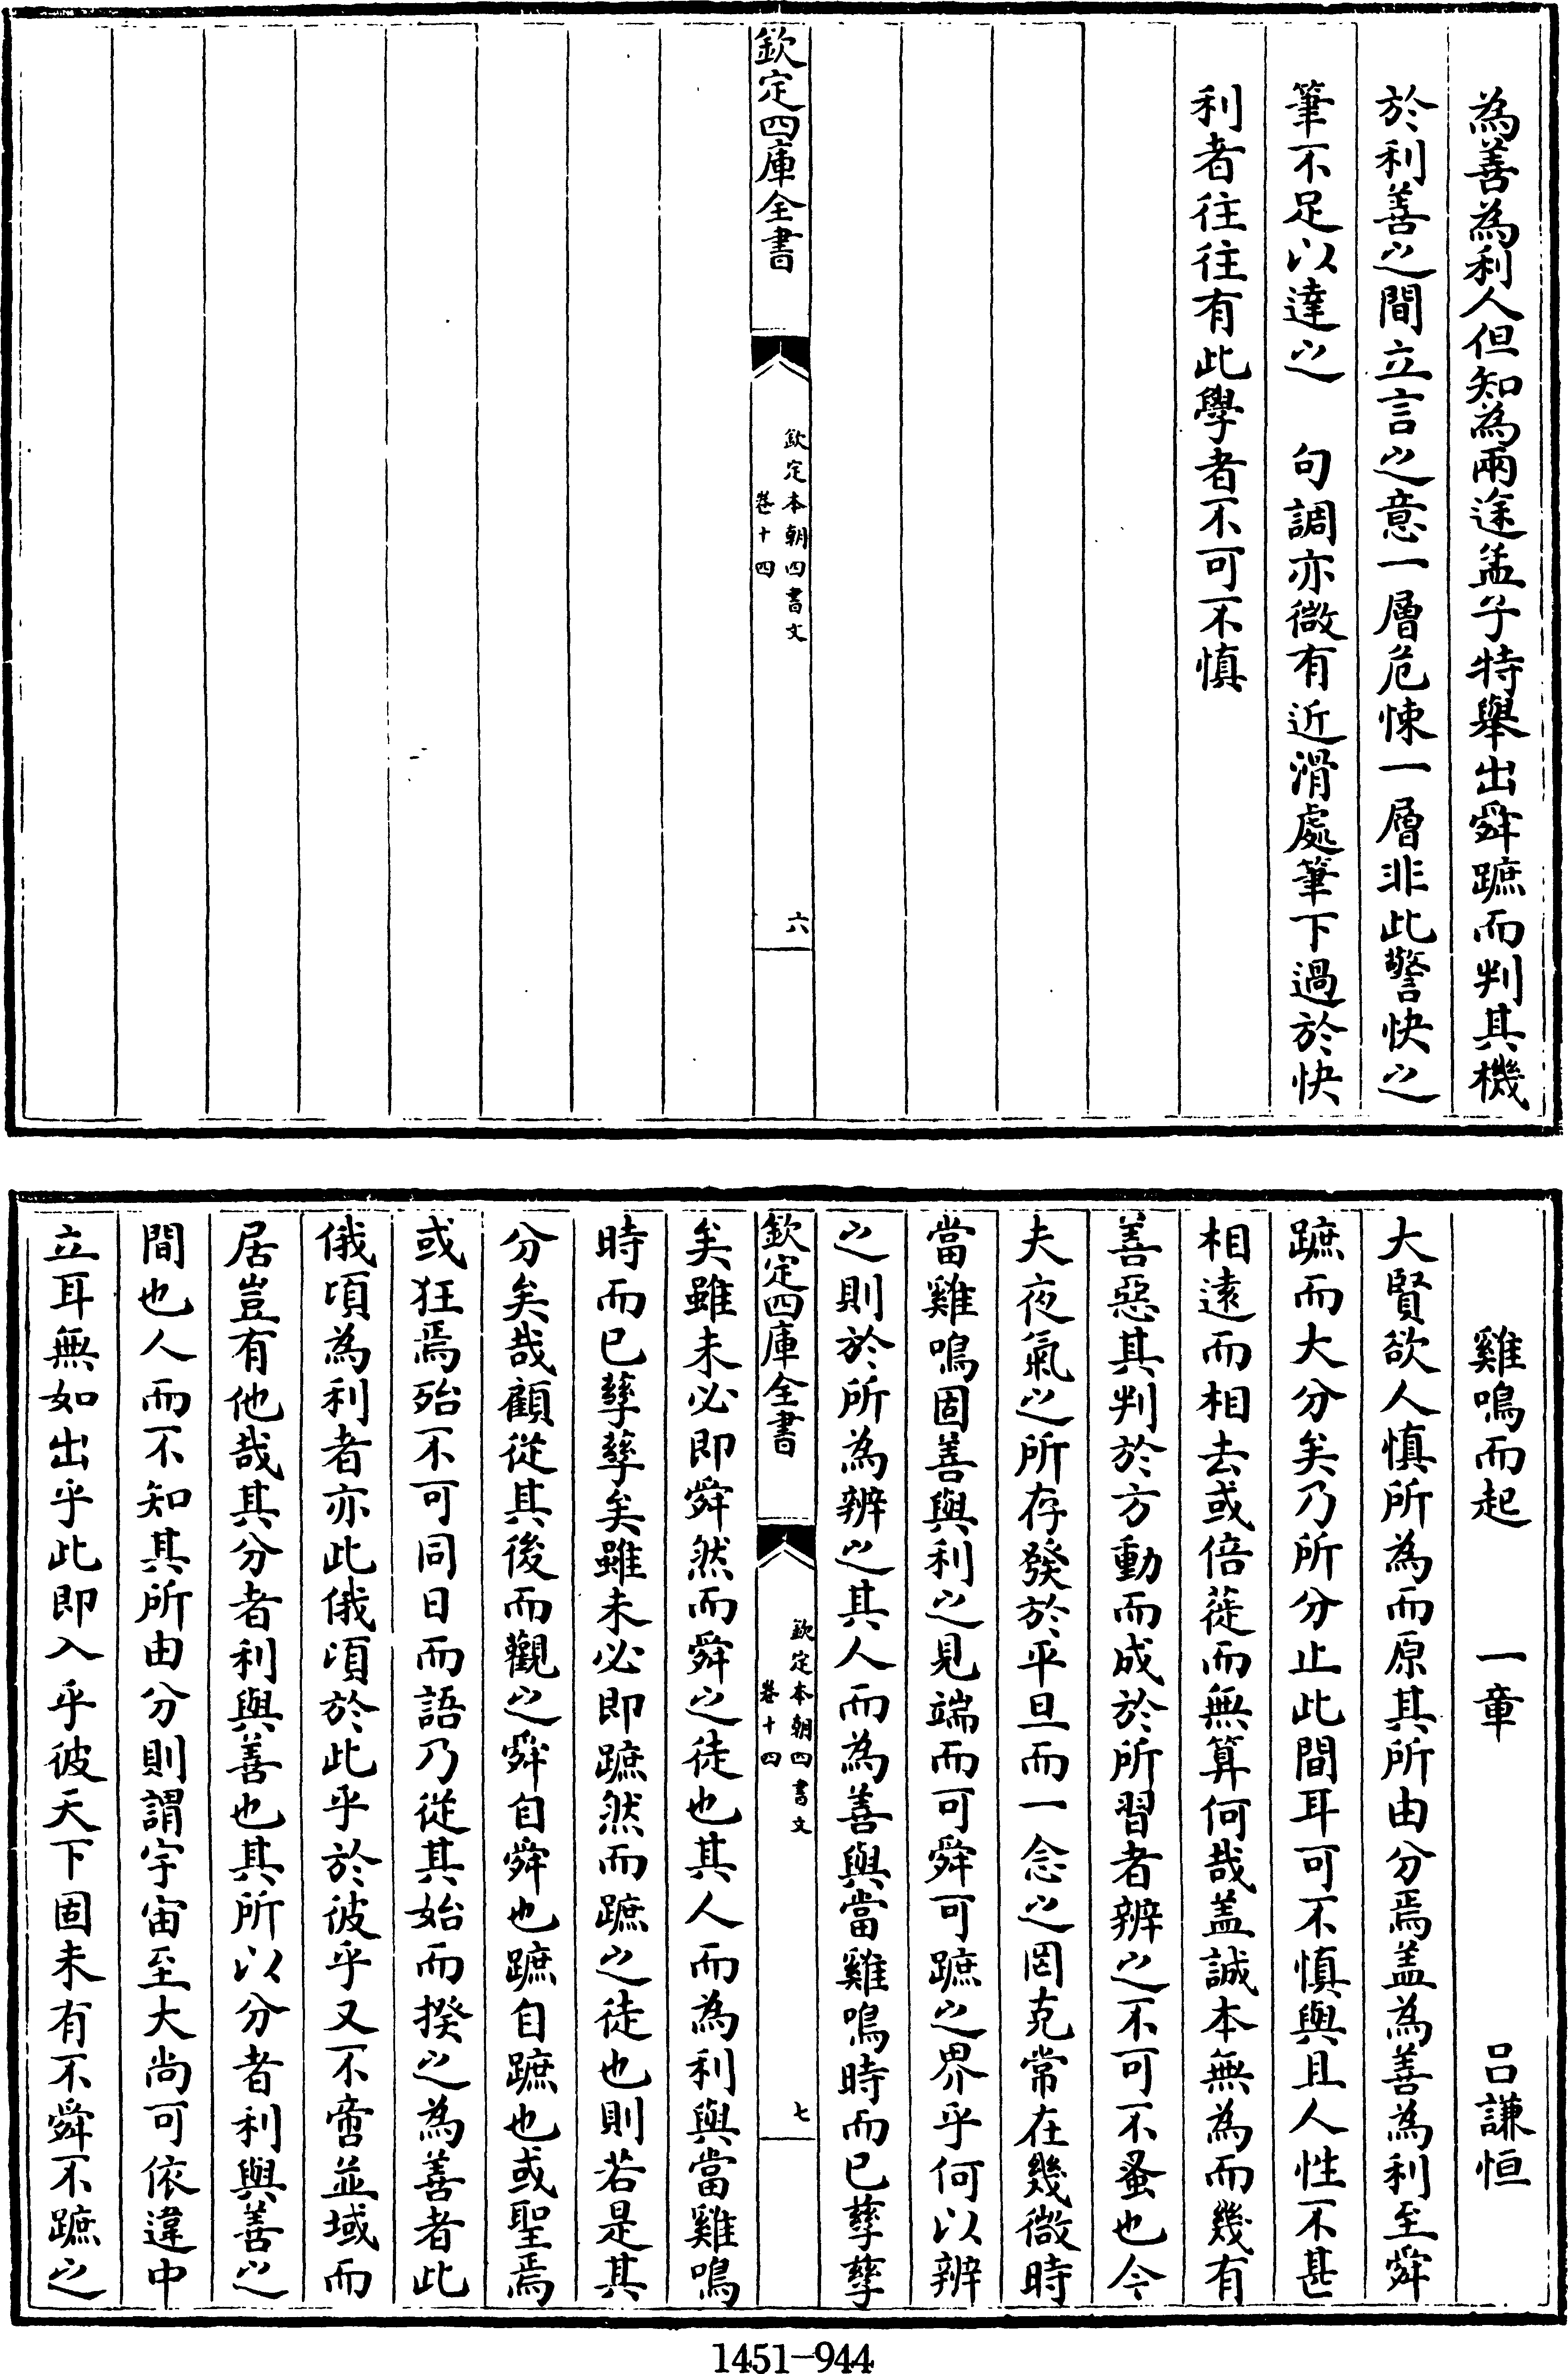 為善為利人但知為兩途孟子特舉出舜蹠而判其機
於利善之間立言之意一層危悚一層非此警快之
筆不足以達之　句調亦微有近滑處筆下過於快
利者往往有此學者不可不慎
欽定四庫全書
欽定本朝四書文
卷十四
六
雞鳴而起　一章　呂謙恒
大賢欲人慎所為而原其所由分焉盖為善為利至舜
蹠而大分矣乃所分止此間耳可不慎與且人性不甚
相遠而相去或倍蓰而無算何哉盖誠本無為而幾有
善惡其判於方動而成於所習者辨之不可不蚤也今
夫夜氣之所存發於平旦而一念之罔克常在幾微時
當雞鳴固善與利之見端而可舜可蹠之界乎何以辨
之則於所為辨之其人而為善與當雞鳴時而已孳孳
欽定四庫全書
欽定本朝四書文
卷十四
七
矣雖未必即舜然而舜之徒也其人而為利與當雞鳴
時而已孳孳矣雖未必即蹠然而蹠之徒也則若是其
分矣哉顧從其後而觀之舜自舜也蹠自蹠也或聖焉
或狂焉殆不可同日而語乃從其始而揆之為善者此
俄頃為利者亦此俄頃於此乎於彼乎又不啻並域而
居豈有他哉其分者利與善也其所以分者利與善之
間也人而不知其所由分則謂宇宙至大尚可依違中
立耳無如出乎此即入乎彼天下固未有不舜不蹠之
1451-944